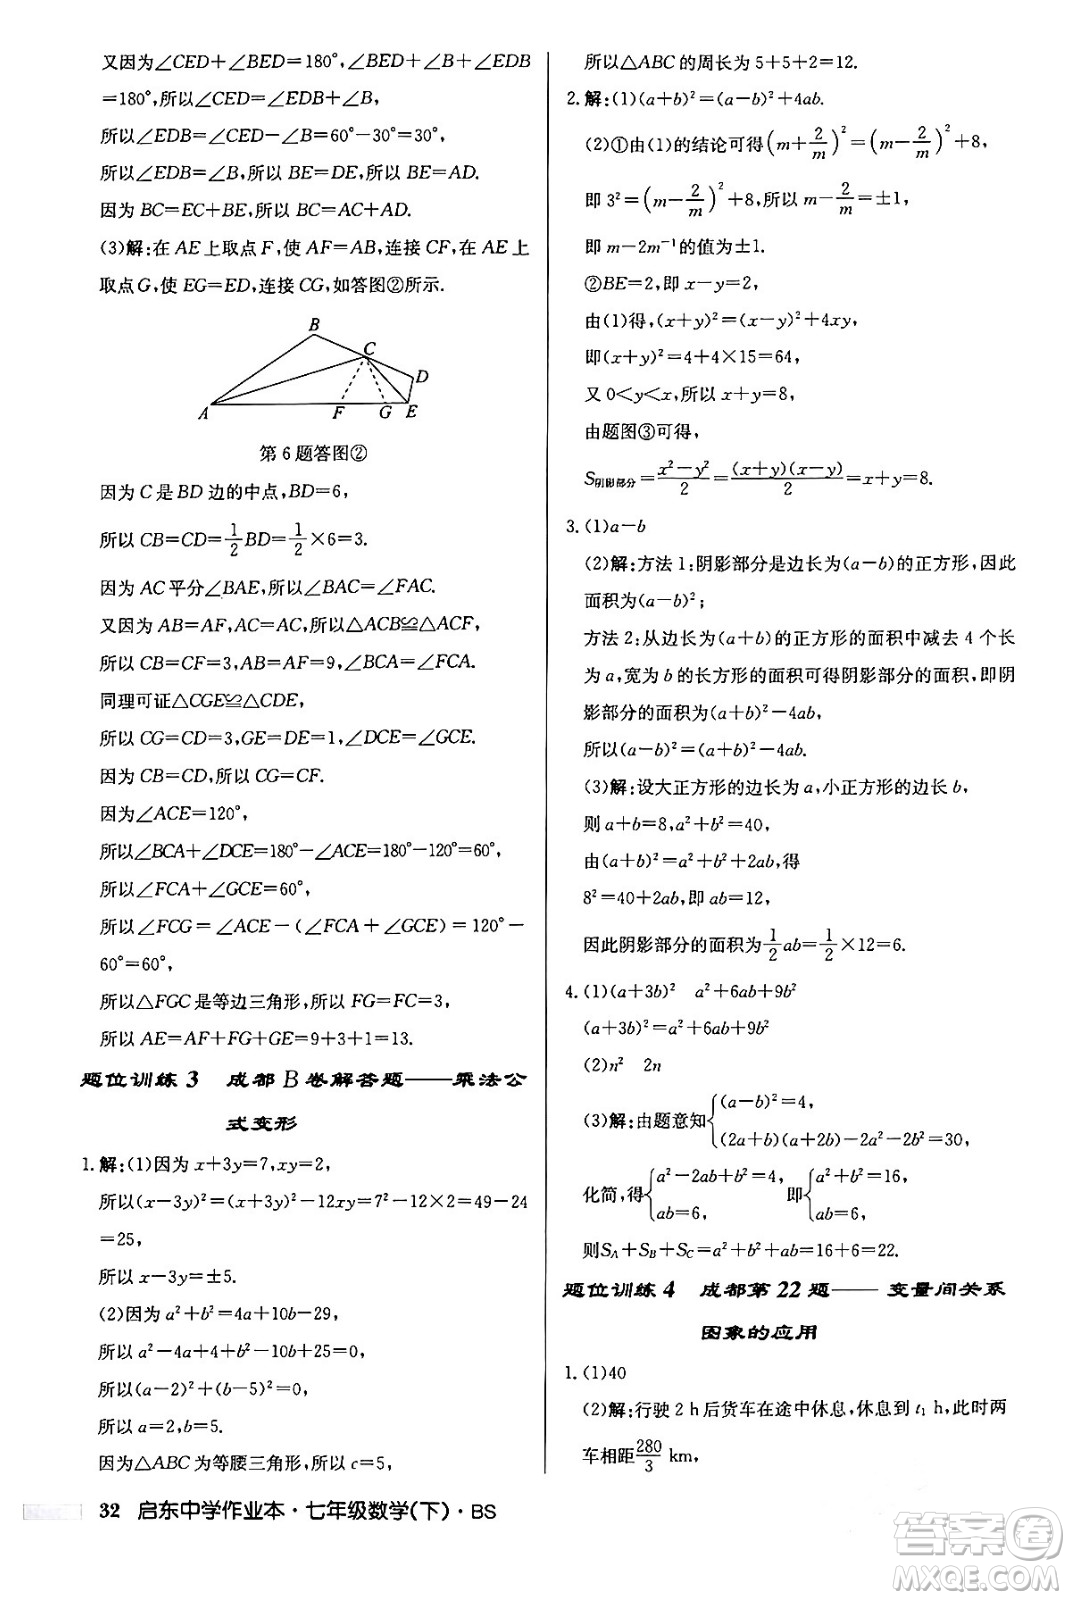 又因为∠CED+∠BED=180°,∠B+∠EDB
=180°,所以∠CED=∠EDB+∠B,
所以∠EDB=∠B=60°-30°=30°,
所以∠EDB=∠B,所以BE=DE,所以BE=AD.
因为BC=EC+BE,所以BC=AC+AD.
(3)解:在AE上取点F,使AF=AB,连接CF,在AE上
取点G,使EG=ED,连接CG,如答图②所示.
B
C
D
A
F
G
E
第6题答图②
因为C是BD边的中点,BD=6,
所以CB=CD=1/2BD=1/2×6=3.
因为AC平分∠BAE,所以∠BAC=∠FAC.
又因为AB=AF,AC=AC,所以△ACB≌△ACF,
所以CB=CF=3,AB=AF=9,∠BCA=∠FCA.
同理可证△CGE≌△CDE,
所以CG=CD=3,GE=DE=1,∠DCE=∠GCE.
因为CB=CD,所以CG=CF.
因为∠ACE=120°,
所以∠BCA+∠DCE=180°-∠ACE=180°-120°=60°,
所以∠FCA+∠GCE=60°,
所以∠FCG=∠ACE-(∠FCA+∠GCE)=120°-
60°=60°,
所以△FGC是等边三角形,所以FG=FC=3,
所以AE=AF+FG+GE=9+3+1=13.
题位训练3 成都B卷解答题——乘法公
式变形
1.解:(1)因为x+3y=7,xy=2,
所以(x-3y)²=(x+3y)²-12xy=7²-12×2=49-24
=25,
所以x-3y=±5.
(2)因为a²+b²=4a+10b-29,
所以a²-4a+4+b²-10b+25=0,
所以(a-2)²+(b-5)²=0,
所以a=2,b=5.
因为△ABC为等腰三角形,所以c=5,
所以△ABC的周长为5+5+2=12.
2.解:(1)(a+b)²=(a-b)²+4ab.
(2)①由(1)的结论可得(m+2/m)²=(m-2/m)²+8,
即3²=(m-2/m)²+8,所以m-2/m=±1,
即m-2m⁻¹的值为±1.
②BE=2,即x-y=2,
由(1)得,(x+y)²=(x-y)²+4xy,
即(x+y)²=4+4×15=64,
又0<y<x,所以x+y=8,
由题图③可得,
S阴影部分=(x²-y²)/2=(x+y)(x-y)/2=x+y=8.
3.(1)a-b
(2)解:方法1:阴影部分是边长为(a-b)的正方形,因此
面积为(a-b)²;
方法2:从边长为(a+b)的正方形的面积中减去4个长
为a,宽为b的长方形的面积可得阴影部分的面积,即阴
影部分的面积为(a+b)²-4ab,
所以(a-b)²=(a+b)²-4ab.
(3)解:设大正方形的边长为a,小正方形的边长b,
则a+b=8,a²+b²=40,
由(a+b)²=a²+b²+2ab,得
8²=40+2ab,即ab=12,
因此阴影部分的面积为1/2ab=1/2×12=6.
4.(1)(a+3b)² a²+6ab+9b²
(a+3b)²=a²+6ab+9b²
(2)n² 2n
(3)解:由题意知{(a-b)²=4, (2a+b)(a+2b)-2a²-2b²=30,
化简,得{a²-2ab+b²=4, ab=6, 即{a²+b²=16, ab=6,
则S_A+S_B+S_C=a²+b²+ab=16+6=22.
题位训练4 成都第22题——变量间关系
图象的应用
1.(1)40
(2)解:行驶2 h后货车在途中休息,休息到t₁ h,此时两
车相距280/3 km,
32 启东中学作业本·七年级数学(下)·BS
答案圈
MXQE.COM